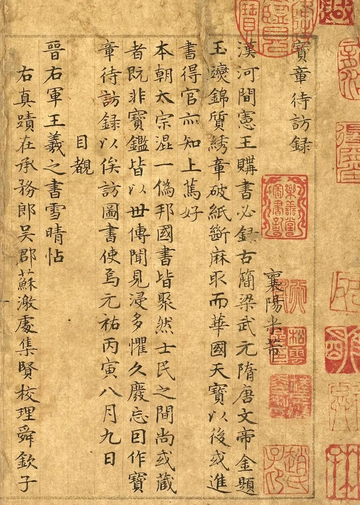 寶章待訪錄
襄陽米芾
漢河間憲王購書必錄古簡梁武元隋唐文帝金題
玉躞錦質綉章破紙斷麻取而華國天寶以後或進
書得官亦知上篤好
本朝太宗混一僞邦國書皆聚然士民之間尚或藏
者既非寶鑑皆以世傳聞見浸多懼久廢忘囙作寶
章待訪錄以俟訪圖書使焉元祐丙寅八月九日
目覩
晉右軍王羲之書雪晴帖
右真蹟在承務郎吳郡蘇激處集賢校理舜欽子